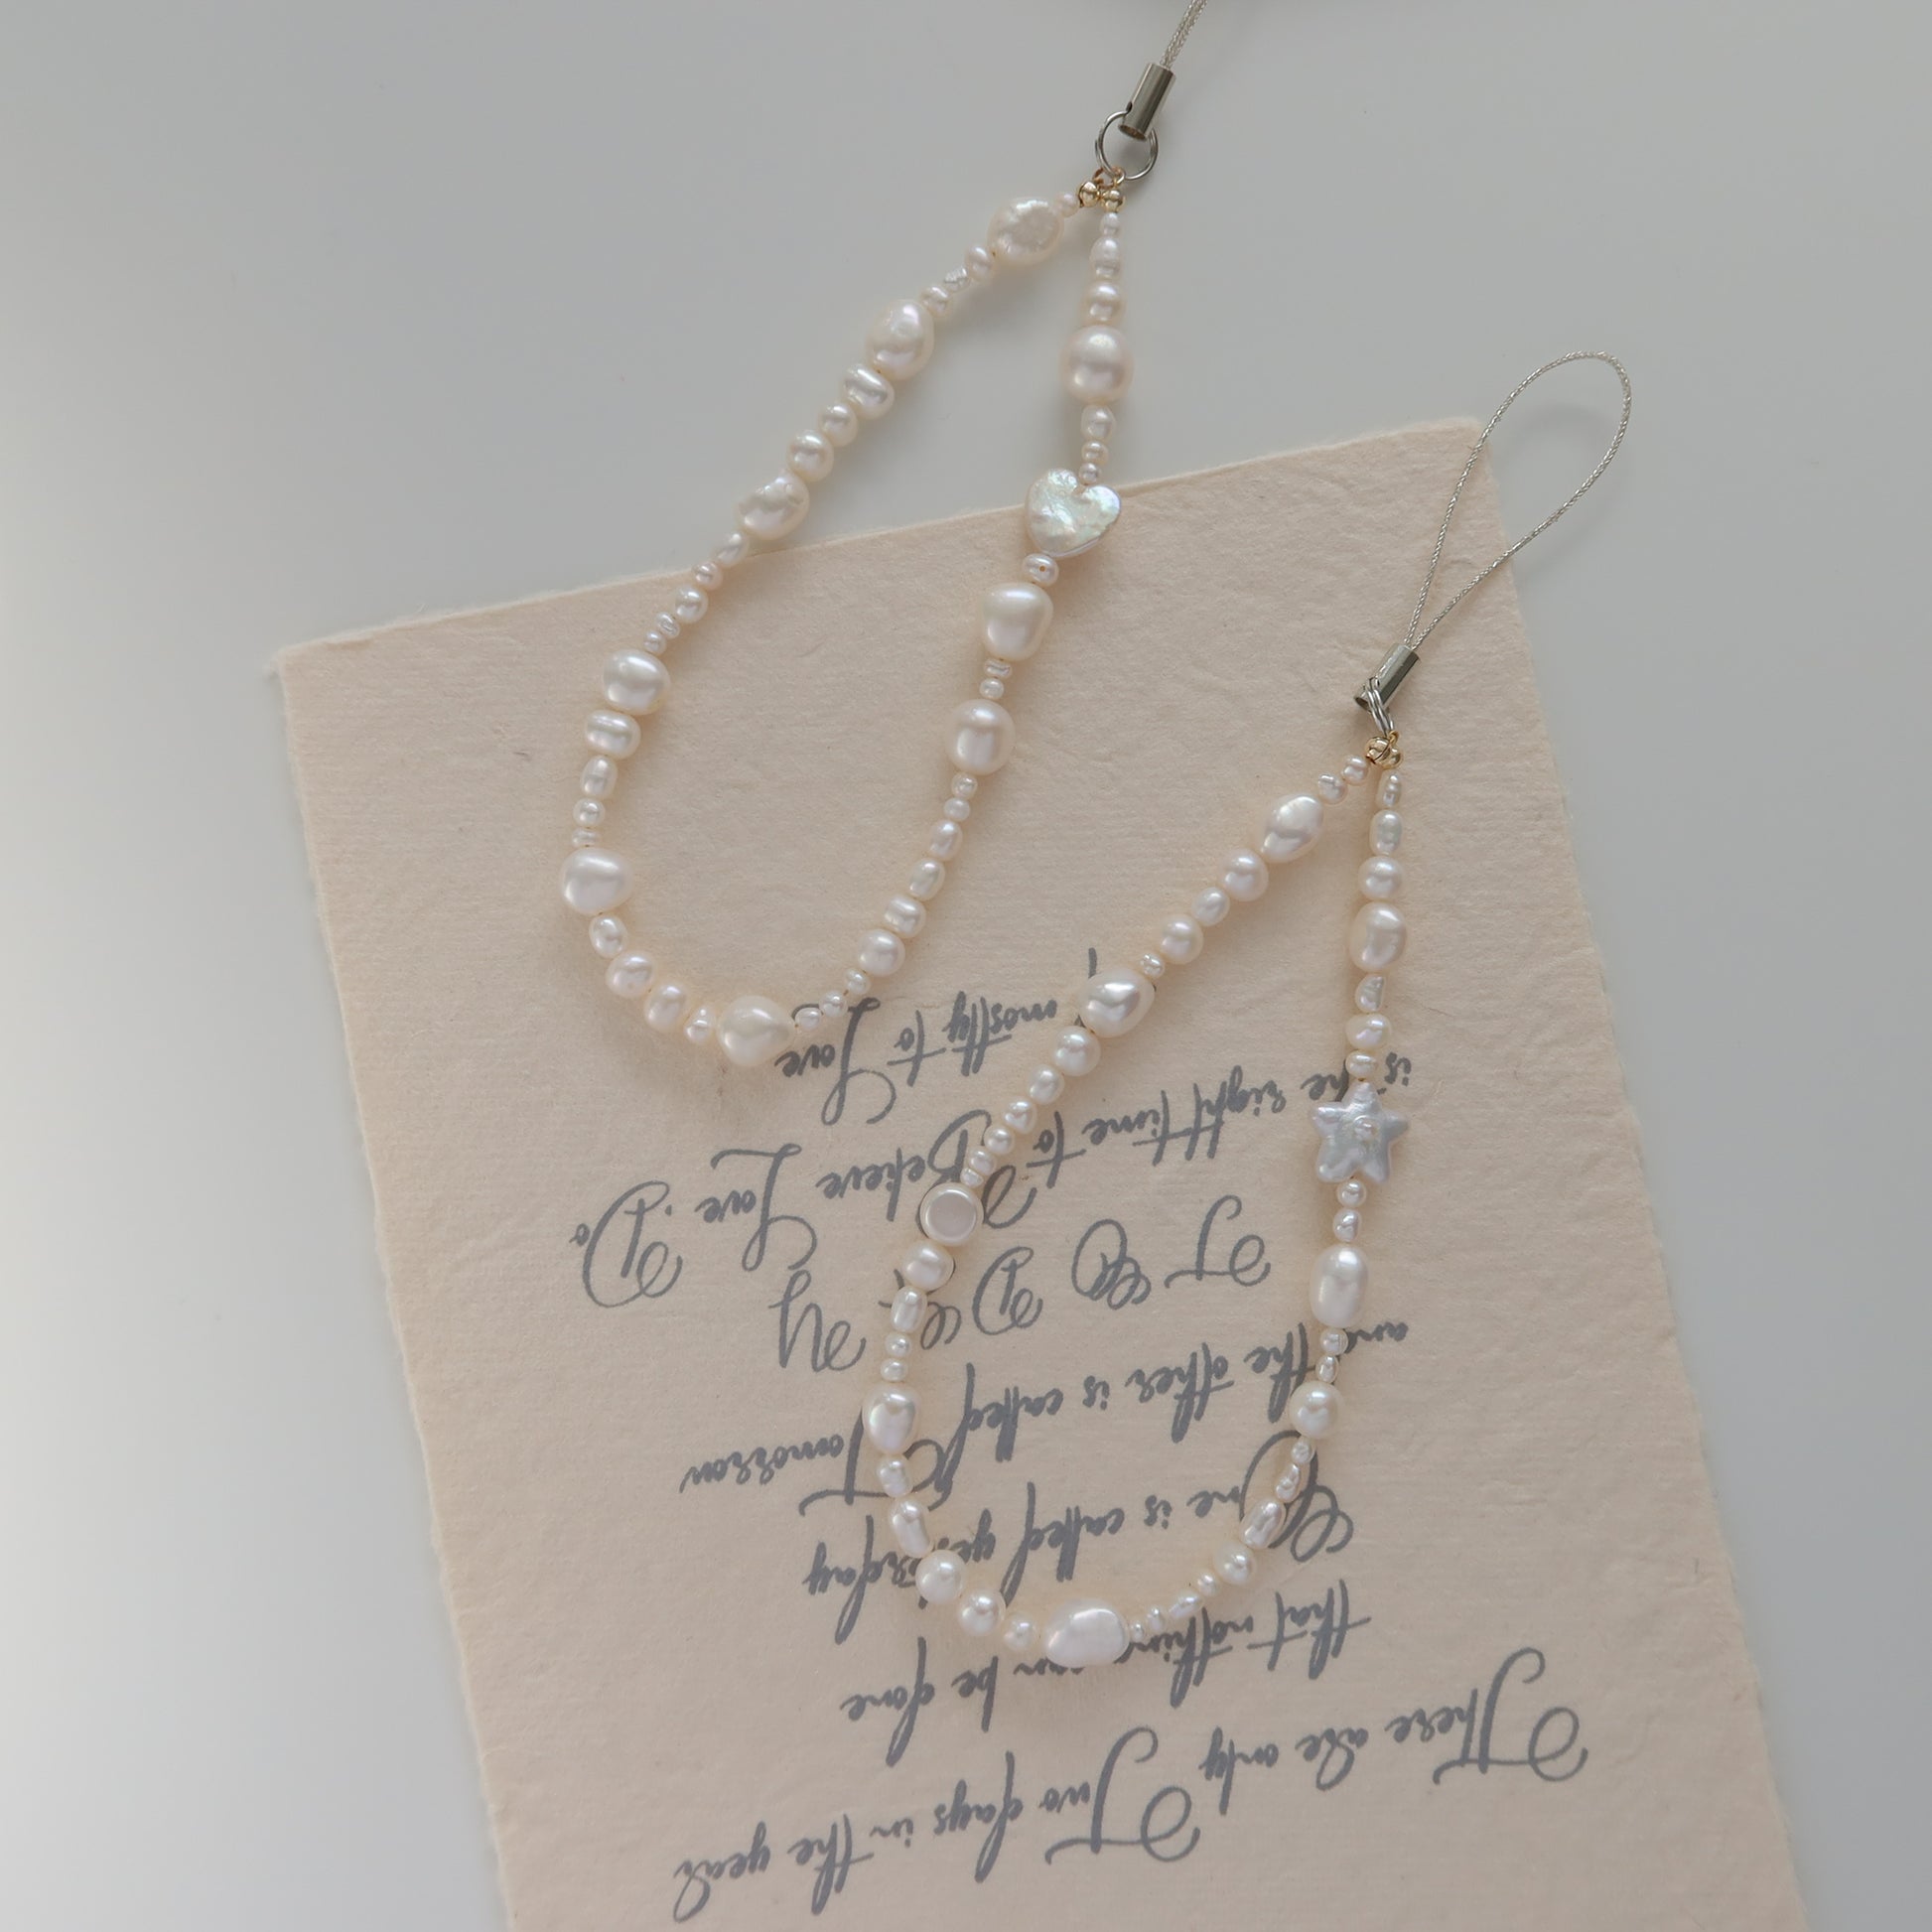 There are only
Two days in the year
that nothing can be done
One is called yesterday
and the other is called Tomorrow
TODAY
is the right time to
Love, Believe, Do
mostly to Love